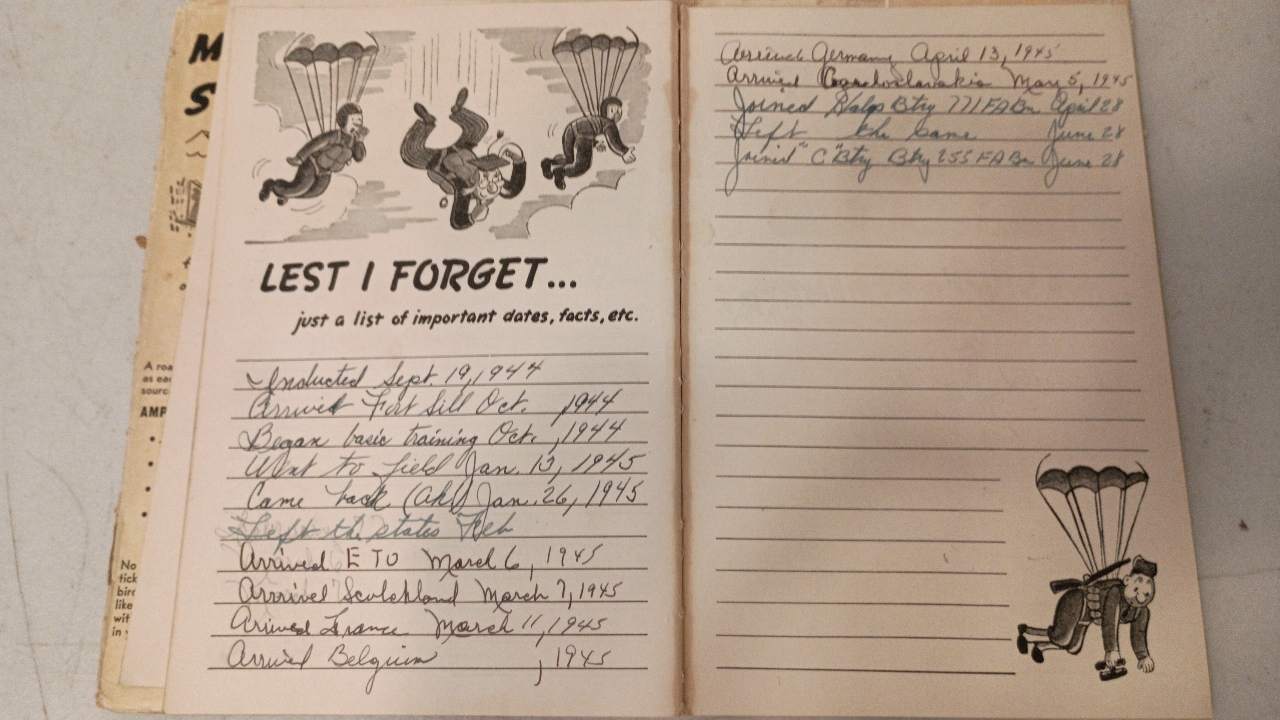 M
S
A roa
as eac
sourc
AMP
No
tick
bird
like
wit
in
LEST I FORGET...
just a list of important dates, facts, etc.
Inducted Sept. 19, 1944
Arrived Fort Sill Oct. , 1944
Began basic training Oct. , 1944
Went to field Jan. 13, 1945
Came back (Ah!) Jan. 26, 1945
Left the states Feb
Arrived E T O March 6, 1945
Arrrived March 7, 1945
Arrived France March 11, 1945
Arrived Belgium , 1945
Arrived Germany April 13, 1945
Arrived Czechoslavakia May 5, 1945
Joined Hdqs Btry 771 FA Bn April 28
Left the Same June 28
Joined "C" Btry Bty 255 FA Bn June 28